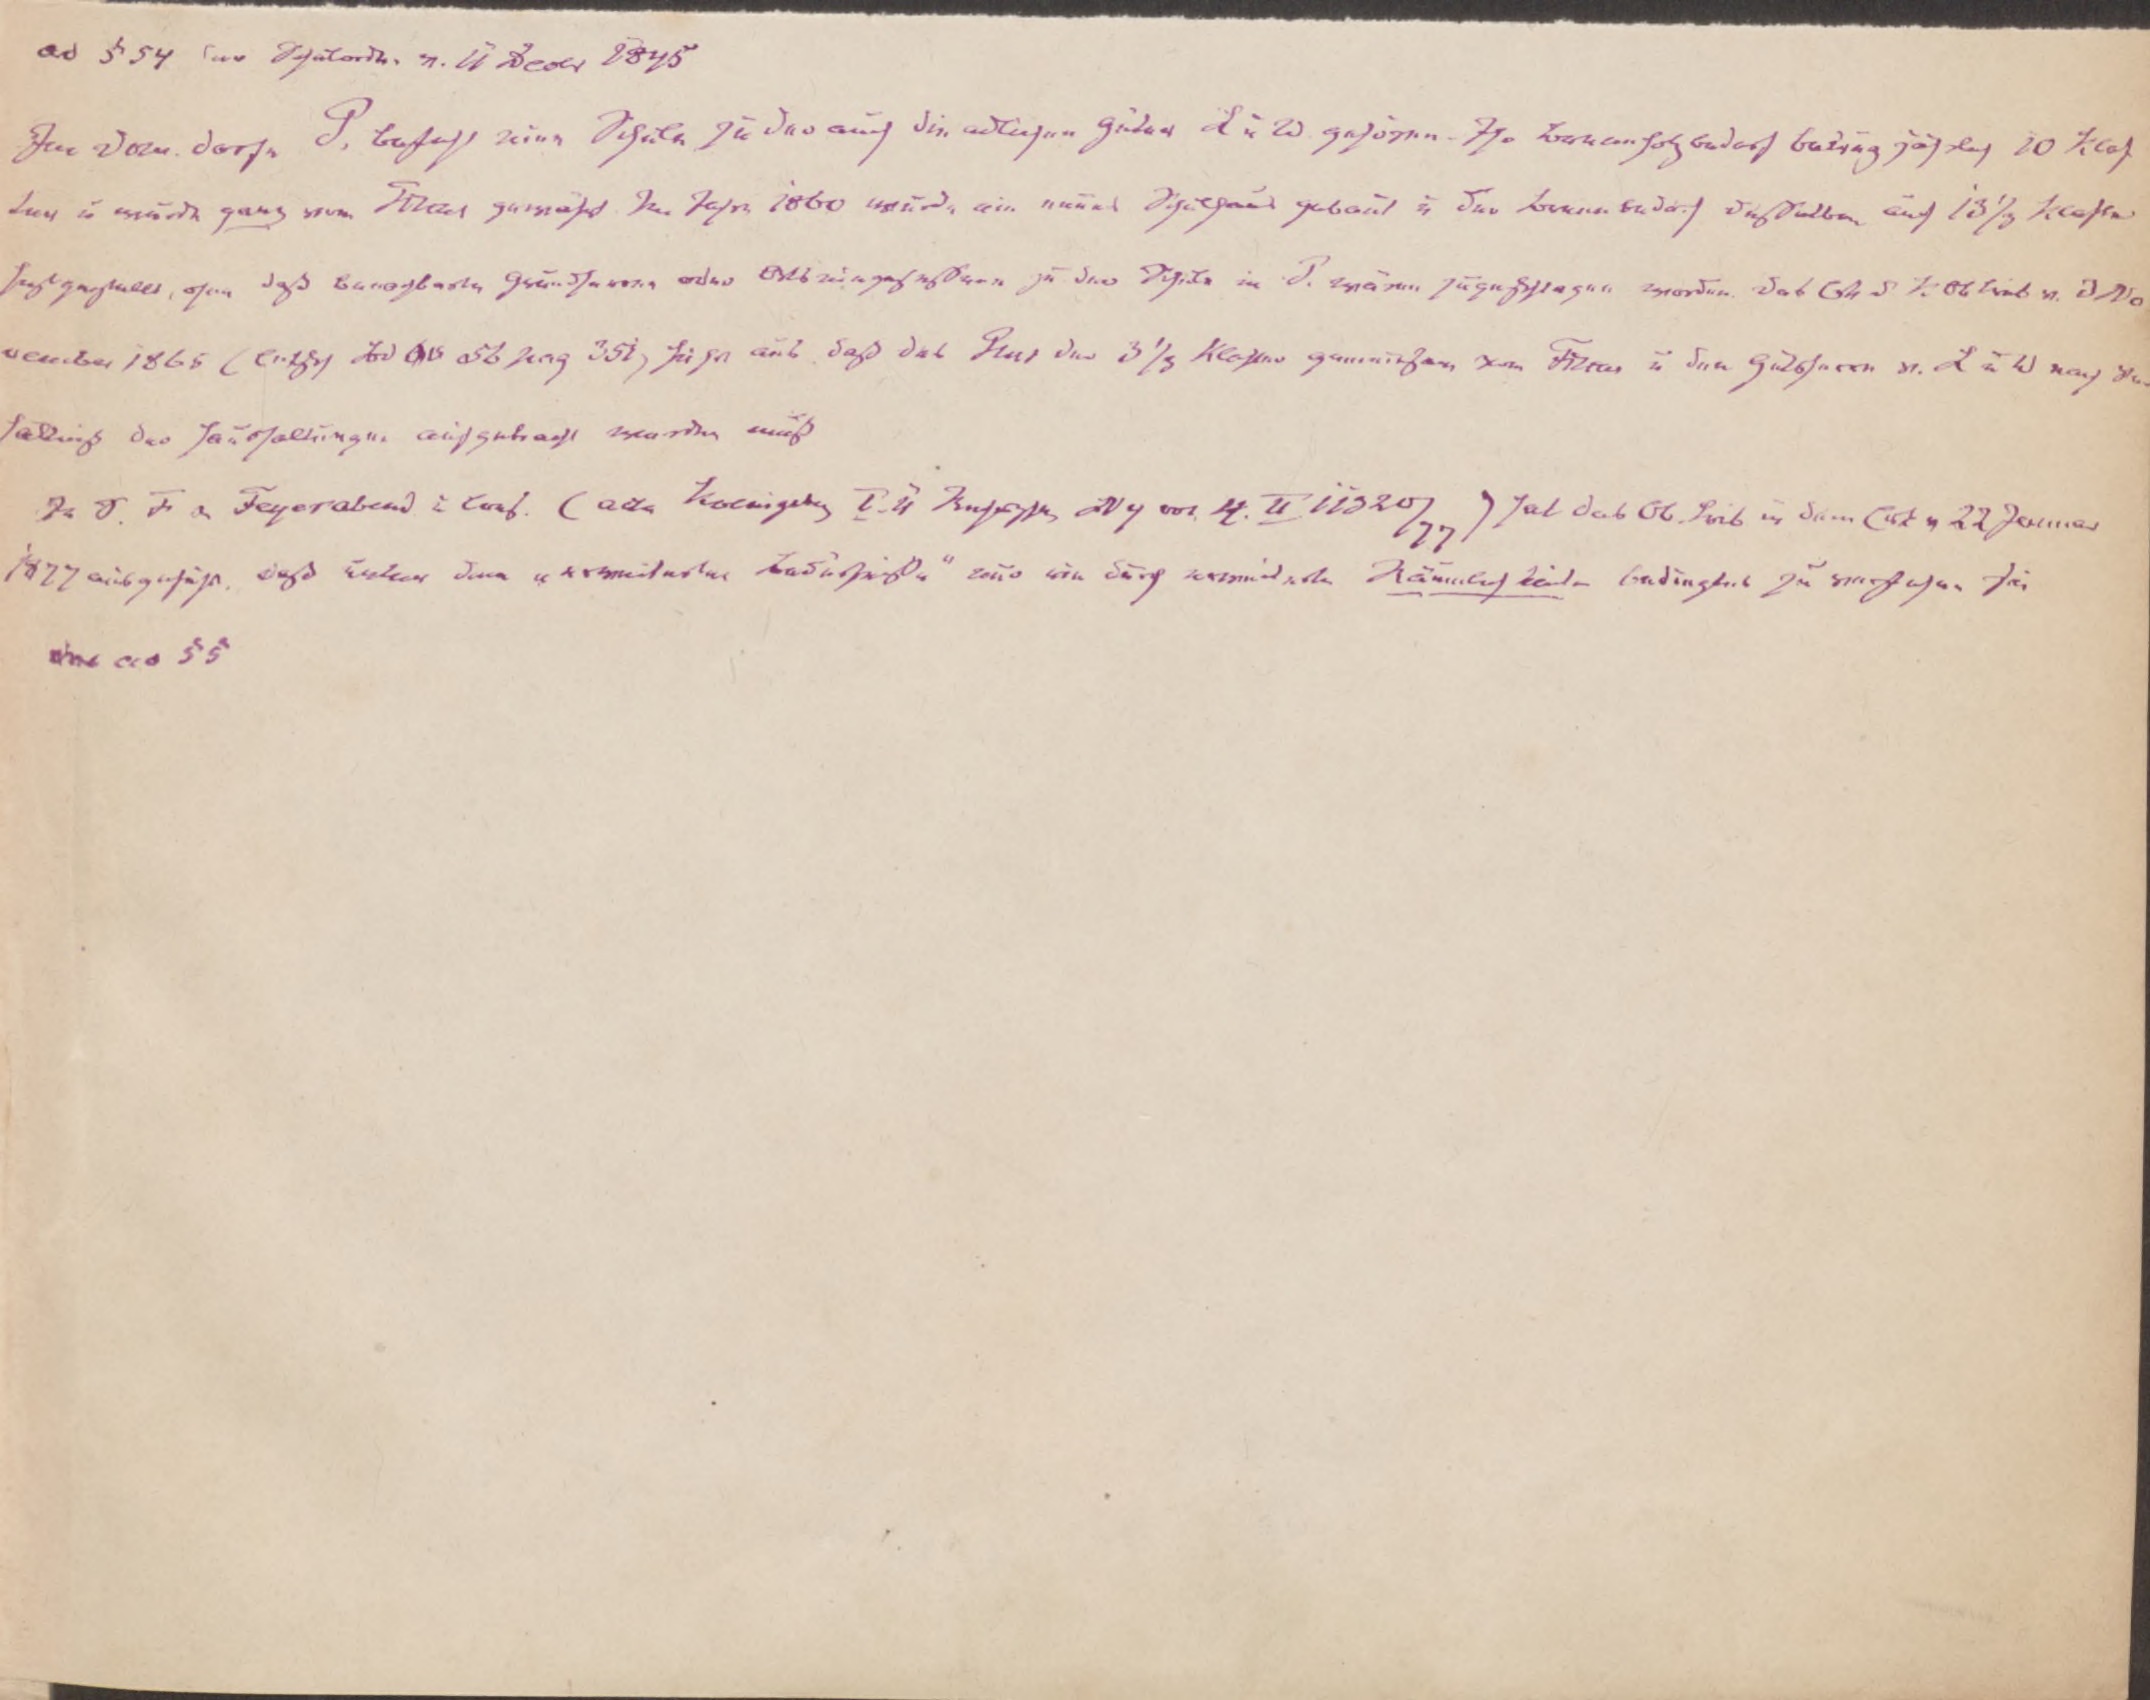 ad § 54 der Schulordn. v. 11 Decbr 1845
Im Dom. dorfe P. besteht eine Schule zu der auch die adlichen Güter L u W. gehören. Ihr Brennholzbedarf betrug jährlich 10 Klaf
tern u wurde ganz vom Fiscus gewährt. Im Jahre 1860 wurde ein neues Schulhaus gebaut u der Brennbedarf desselben auf 13 1/3 Klafter
festgestellt, ohne daß benachbarte Grundherren oder Ortseingesessenen zu der Schule in P. wären zugeschlagen worden. Das Erk d K. Ob Trib v. 3 No
vember 1865 (Entsch Bd 55 pag 351) führt aus, daß das Plus der 3 1/3 Klafter gemeinsam vom Fiscus u den Gutsherren v. L u W nach Ver
hältniß der Haushaltungen aufgebracht werden muß
In S. F a Feyerabend u Cons. ( acta Koenigsberg II 11320/77 ) hat das Ob. Trib in dem Erk v 22 Januar
1877 ausgeführt, daß unter dem „vermehrten Bedürfnisse" nur ein durch vermehrte Räumlichkeiten bedingtes zu verstehen sei
ad § 5